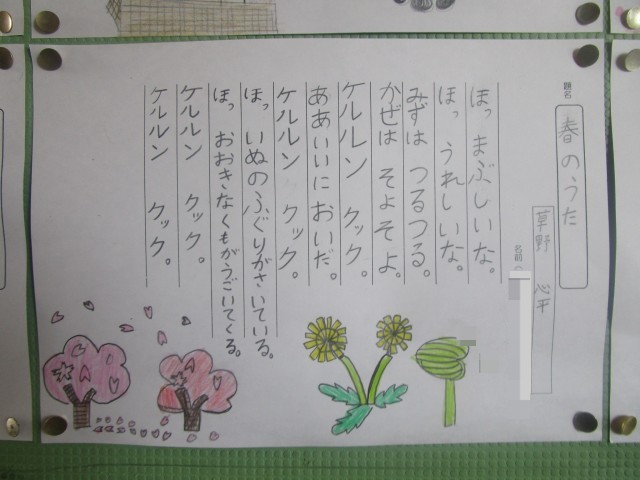 題名
春のうた
草野 心平
名前
ほっ まぶしいな。
ほっ うれしいな。
みずは つるつる。
かぜは そよそよ。
ケルルン クック。
ああいいにおいだ。
ケルルン クック。
ほっ いぬのふぐりがさいている。
ほっ おおきなくもがうごいてくる。
ケルルン クック。
ケルルン クック。